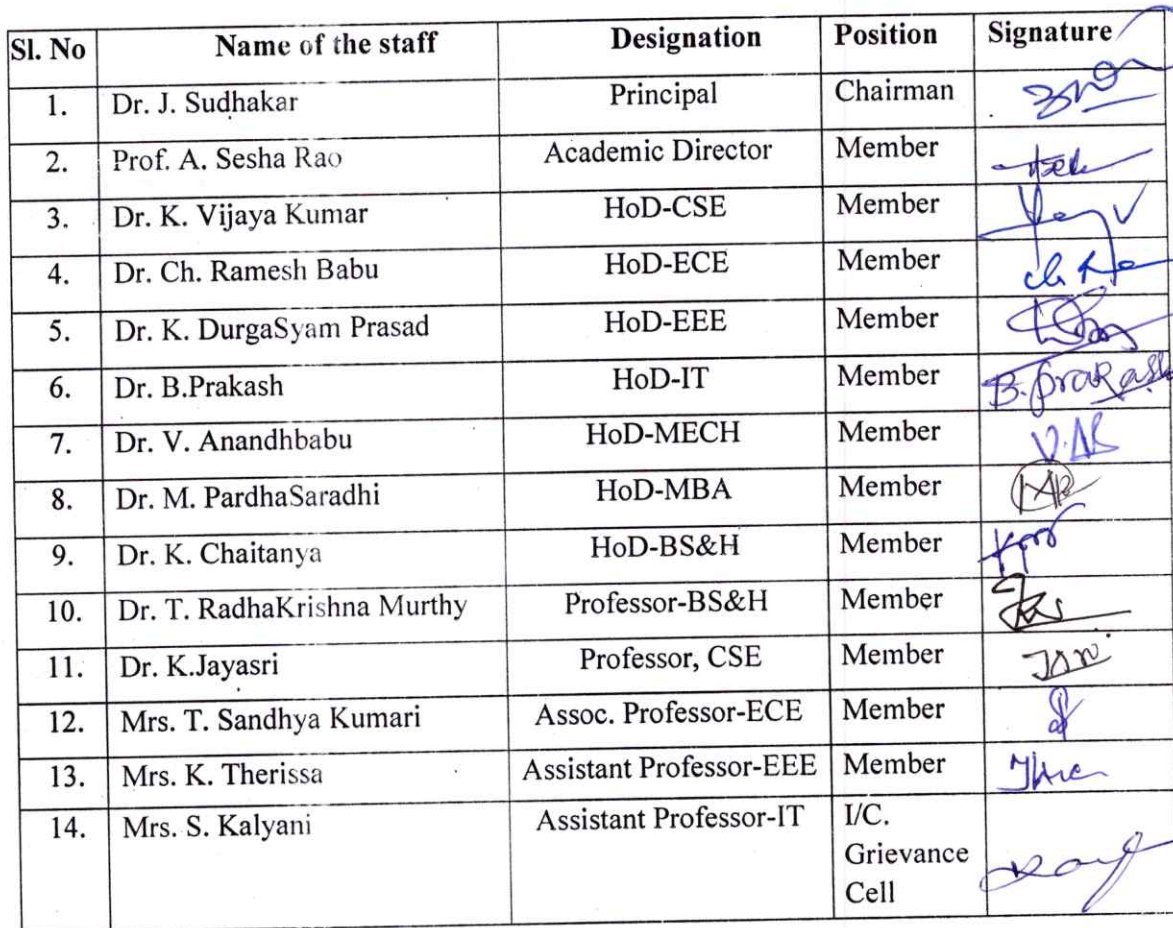 Sl. No Name of the staff Designation Position Signature
1. Dr. J. Sudhakar Principal Chairman
2. Prof. A. Sesha Rao Academic Director Member
3. Dr. K. Vijaya Kumar HoD-CSE Member
4. Dr. Ch. Ramesh Babu HoD-ECE Member
5. Dr. K. DurgaSyam Prasad HoD-EEE Member
6. Dr. B.Prakash HoD-IT Member B. prakash
7. Dr. V. Anandhbabu HoD-MECH Member
8. Dr. M. PardhaSaradhi HoD-MBA Member
9. Dr. K. Chaitanya HoD-BS&H Member
10. Dr. T. RadhaKrishna Murthy Professor-BS&H Member
11. Dr. K.Jayasri Professor, CSE Member
12. Mrs. T. Sandhya Kumari Assoc. Professor-ECE Member
13. Mrs. K. Therissa Assistant Professor-EEE Member
14. Mrs. S. Kalyani Assistant Professor-IT I/C.
Grievance
Cell